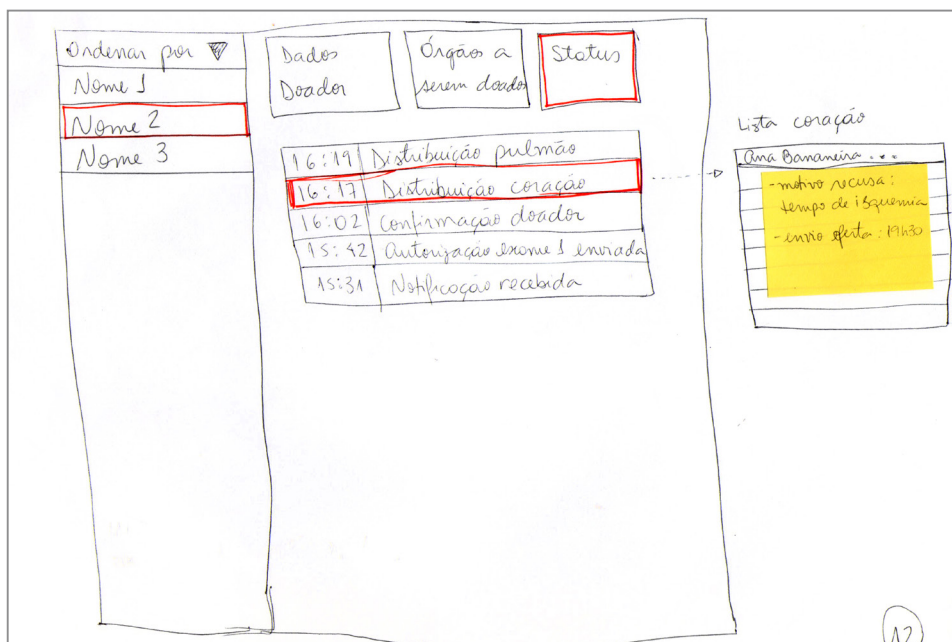 Ordenar por
Nome 1
Nome 2
Nome 3
Dados
Doador
Órgãos a
serem doados
Status
16:19 Distribuição pulmão
16:17 Distribuição coração
16:02 Confirmação doador
15:42 Autorização exame 1 enviada
15:31 Notificação recebida
Lista coração
Ana Bananeira ...
- motivo recusa:
tempo de isquemia
- envio oferta: 19h30
12